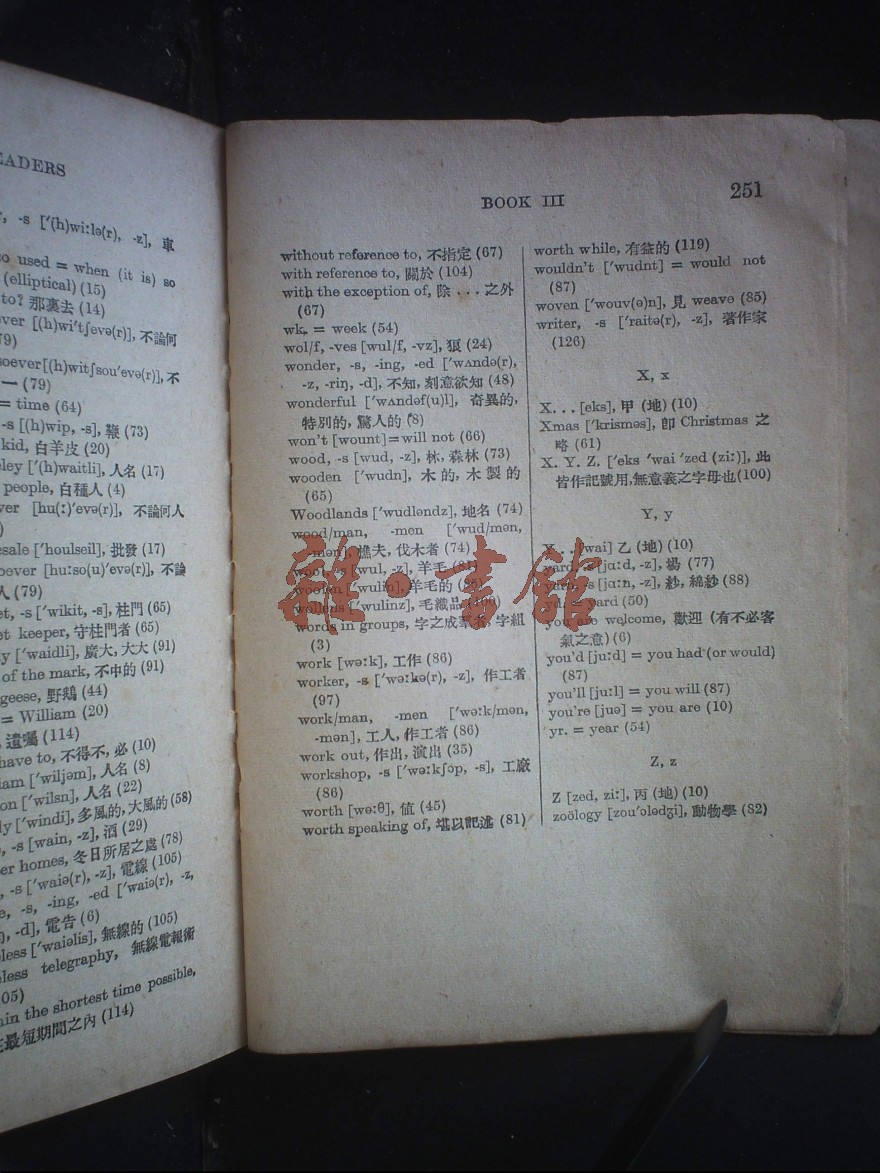 EADERS
-s ['(h)wiːlə(r), -z], 車
so used = when (it is) so
(elliptical) (15)
to? 那裏去 (14)
ever [(h)wi'tʃevə(r)], 不論何
79)
soever[(h)witʃsou'evə(r)], 不
一 (79)
= time (64)
-s [(h)wip, -s], 鞭 (73)
kid, 白羊皮 (20)
ley ['(h)waitli], 人名 (17)
people, 白種人 (4)
ver [hu(ː)'evə(r)], 不論何人
)
esale ['houlseil], 批發 (17)
oever [huːso(u)'evə(r)], 不論
人 (79)
et, -s ['wikit, -s], 柱門 (65)
et keeper, 守柱門者 (65)
y ['waidli], 廣大, 大大 (91)
of the mark, 不中的 (91)
geese, 野鵝 (44)
= William (20)
遺囑 (114)
have to, 不得不, 必 (10)
iam ['wiljəm], 人名 (8)
on ['wilsn], 人名 (22)
ly ['windi], 多風的, 大風的 (58)
-s [wain, -z], 酒 (29)
er homes, 冬日所居之處 (78)
-s ['waiə(r), -z], 電線 (105)
e, -s, -ing, -ed ['waiə(r), -z,
-d], 電告 (6)
less ['waiəlis], 無線的 (105)
less telegraphy, 無線電報術
05)
hin the shortest time possible,
最短期間之內 (114)
BOOK III
251
without reference to, 不指定 (67)
with reference to, 關於 (104)
with the exception of, 除 . . . 之外
(67)
wk. = week (54)
wol/f, -ves [wul/f, -vz], 狼 (24)
wonder, -s, -ing, -ed ['wʌndə(r),
-z, -riŋ, -d], 不知, 刻意欲知 (48)
wonderful ['wʌndəf(u)l], 奇異的,
特別的, 驚人的 (8)
won't [wount] = will not (66)
wood, -s [wud, -z], 林, 森林 (73)
wooden ['wudn], 木的, 木製的
(65)
Woodlands ['wudləndz], 地名 (74)
wood/man, -men ['wud/mən,
-mən], 樵夫, 伐木者 (74)
wool, -s [wul, -z], 羊毛 (81)
woolen ['wulin], 羊毛的
wollens ['wulinz], 毛織品
words in groups, 字之成羣者, 字組
(3)
work [wəːk], 工作 (86)
worker, -s ['wəːkə(r), -z], 作工者
(97)
work/man, -men ['wəːk/mən,
-mən], 工人, 作工者 (86)
work out, 作出, 演出 (35)
workshop, -s ['wəːkʃɔp, -s], 工廠
(86)
worth [wəːθ], 值 (45)
worth speaking of, 堪以記述 (81)
worth while, 有益的 (119)
wouldn't ['wudnt] = would not
(87)
woven ['wouv(ə)n], 見 weave (85)
writer, -s ['raitə(r), -z], 著作家
(126)
X, x
X. . . [eks], 甲 (地) (10)
Xmas ['krisməs], 卽 Christmas 之
略 (61)
X. Y. Z. ['eks 'wai 'zed (ziː)], 此
皆作記號用, 無意義之字母也 (100)
Y, y
[wai] 乙 (地) (10)
yard, -s [jɑːd, -z], 碼 (77)
yarn, -s [jɑːn, -z], 紗, 綿紗 (88)
yard (50)
you are welcome, 歡迎 (有不必客
氣之意) (6)
you'd [juːd] = you had (or would)
(87)
you'll [juːl] = you will (87)
you're [juə] = you are (10)
yr. = year (54)
Z, z
Z [zed, ziː], 丙 (地) (10)
zoölogy [zou'ɔlədʒi], 動物學 (82)
雜·書館